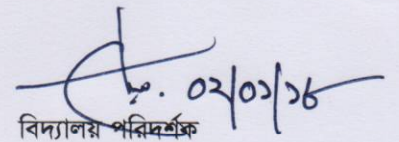 ০২/০১/১৮
বিদ্যালয় পরিদর্শক